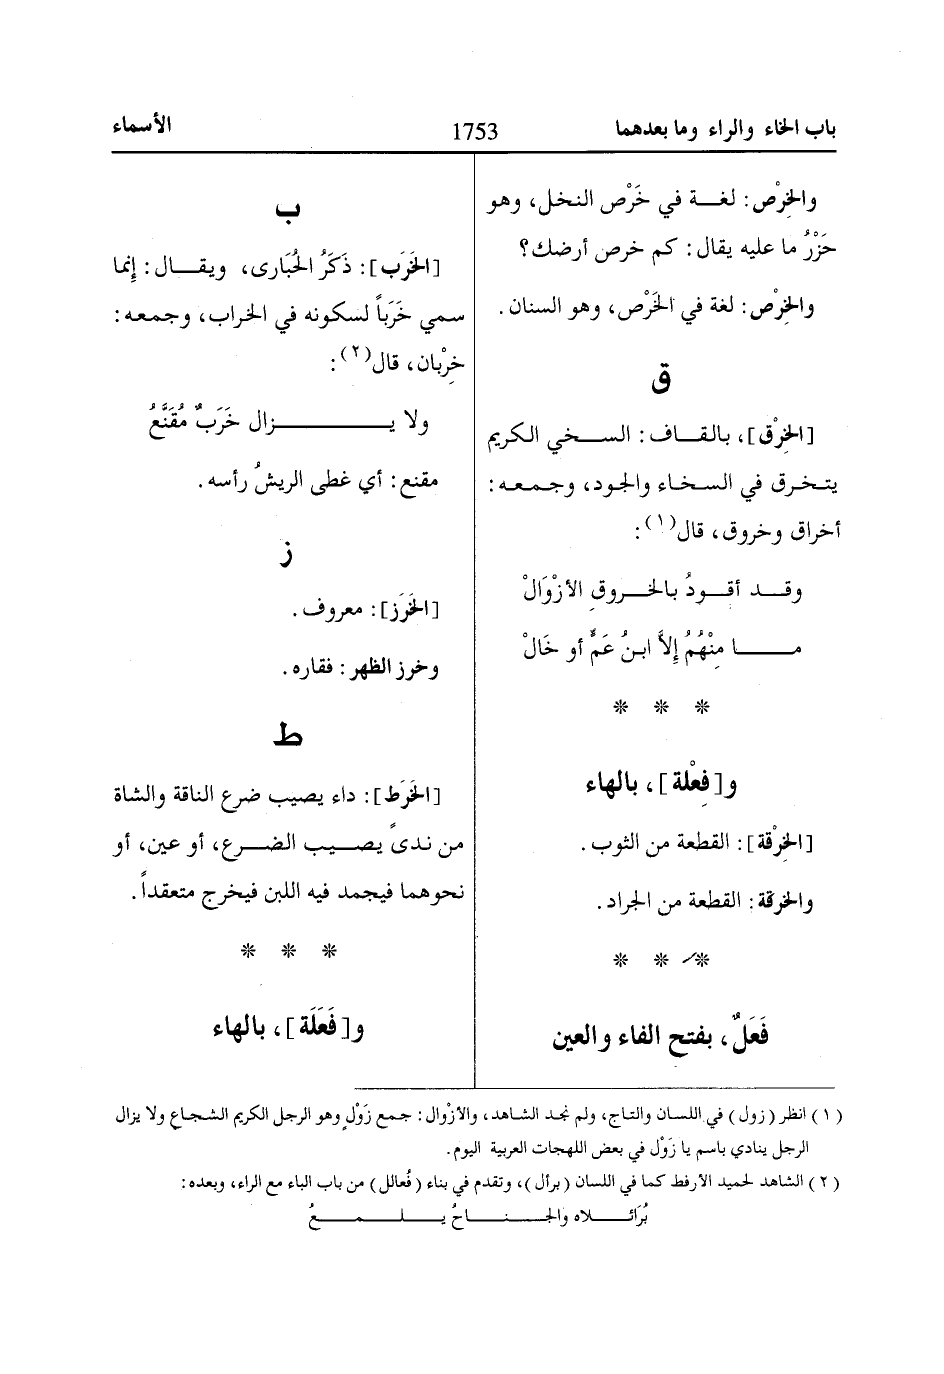 باب الخاء والراء وما بعدهما
1753
الأسماء
والخِرْص: لغــة في خَرْص النخل، وهو
حَزْرُ ما عليه يقال: كم خرص أرضك؟
والخِرْص: لغة في الخَرْص، وهو السنان.
ق
[الخِرْق]، بالقــاف: الســخي الكريم
يتخرق في السخاء والجود، وجمعه:
أخراق وخروق، قال(١):
وقــد أقــودُ بالخــروقِ الأزْوَالْ
مــــا مِنْهُمُ إِلاَّ ابنُ عَمٍّ أو خَالْ
* * *
و[فِعْلة]، بالهاء
[الخِرْقة]: القطعة من الثوب.
والخرقة: القطعة من الجراد.
* * *
فَعَلٌ، بفتح الفاء والعين
ب
[الخَرَب]: ذَكَرُ الحُبَارى، ويقــال: إنما
سمي خَرَباً لسكونه في الخراب، وجمعه:
خِرْبان، قال(٢):
ولا يـــــــــزال خَرَبٌ مُقَنَّعُ
مقنع: أي غطى الريشُ رأسه.
ز
[الخَرَز]: معروف.
وخرز الظهر: فقاره.
ط
[الخَرَط]: داء يصيب ضرع الناقة والشاة
من ندىً يصــيب الضــرع، أو عين، أو
نحوهما فيجمد فيه اللبن فيخرج متعقداً.
* * *
و[فَعَلَة]، بالهاء
(١) انظر (زول) في اللسان والتاج، ولم نجد الشاهد، والأزْوال: جمع زَوْلٍ وهو الرجل الكريم الشجاع ولا يزال
الرجل ينادي باسم يا زَوْل في بعض اللهجات العربية اليوم.
(٢) الشاهد لحميد الأرقط كما في اللسان (برأل)، وتقدم في بناء (فُعالل) من باب الباء مع الراء، وبعده:
بُرَائــــلاه والجــــنــــاحُ يــــلــــمــــعُ